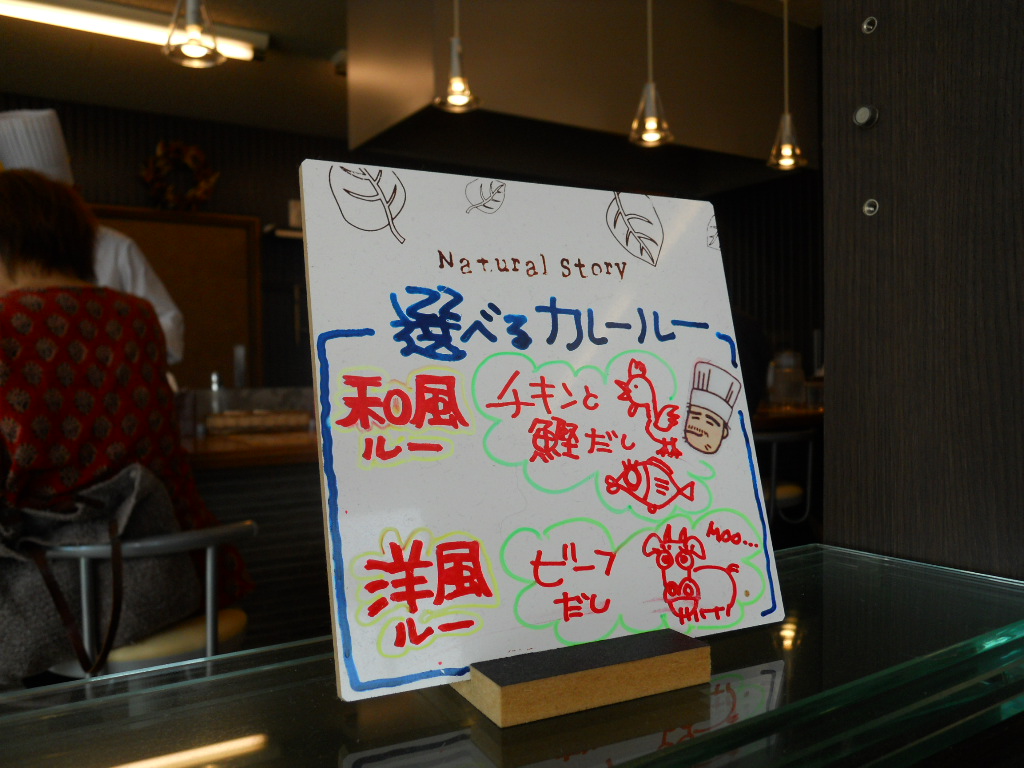 Natural story
選べるカレールー
和風
ルー
チキンと
鰹だし
洋風
ルー
ビーフ
だし
Moo...